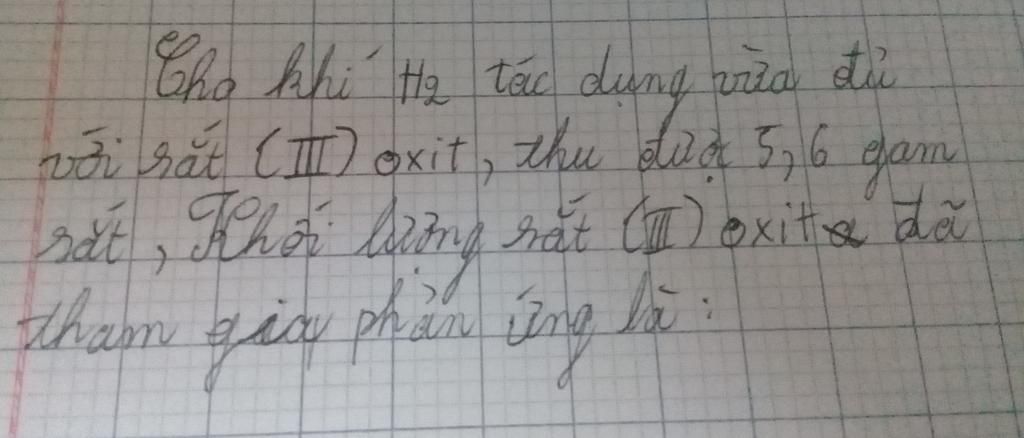 Cho khí H2 tác dụng vừa đủ
với sắt (III) oxit, thu được 5,6 gam
sắt, Khối lượng sắt (III) oxit đã
tham giay phản ứng là: